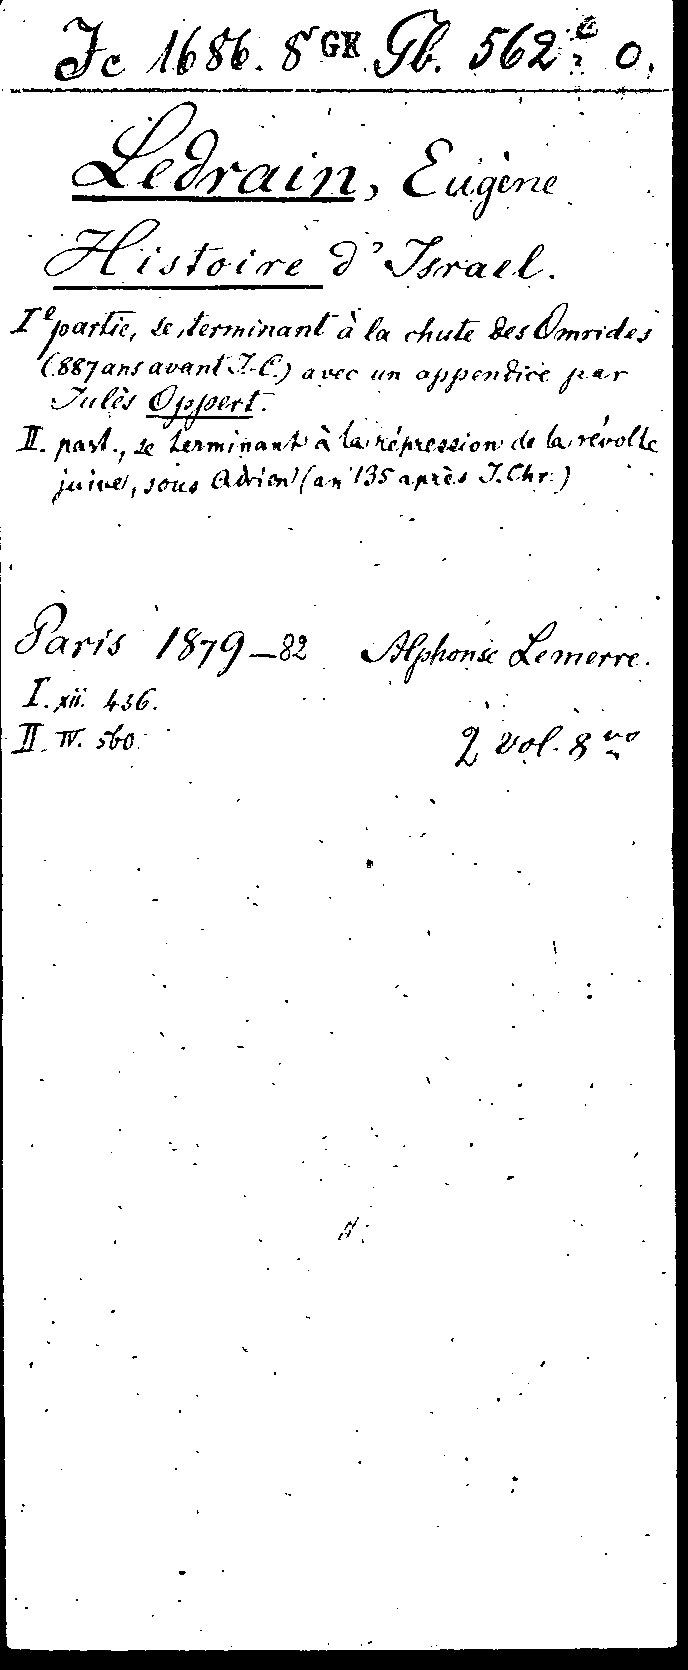 Jc 1686. 8 GR Gb. 562 o.
Ledrain, Eugène
Histoire d'Israel.
Ie partie, se terminant à la chute des Omrides
(887 ans avant J.-C.) avec un appendice par
Jules Oppert.
II. part., se terminant à la répression de la révolte
juive, sous Adrien (an 135 après J. Chr.)
Paris 1879-82 Alphonse Lemerre.
I. xii. 436.
II. IV. 560.
2 vol. 8vo